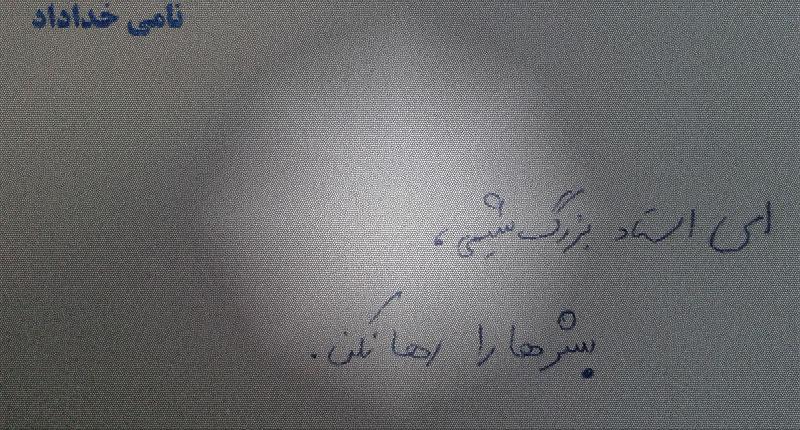 نامی خداداد
ای استاد بزرگ شیمی،
بشرها را رها نکن.